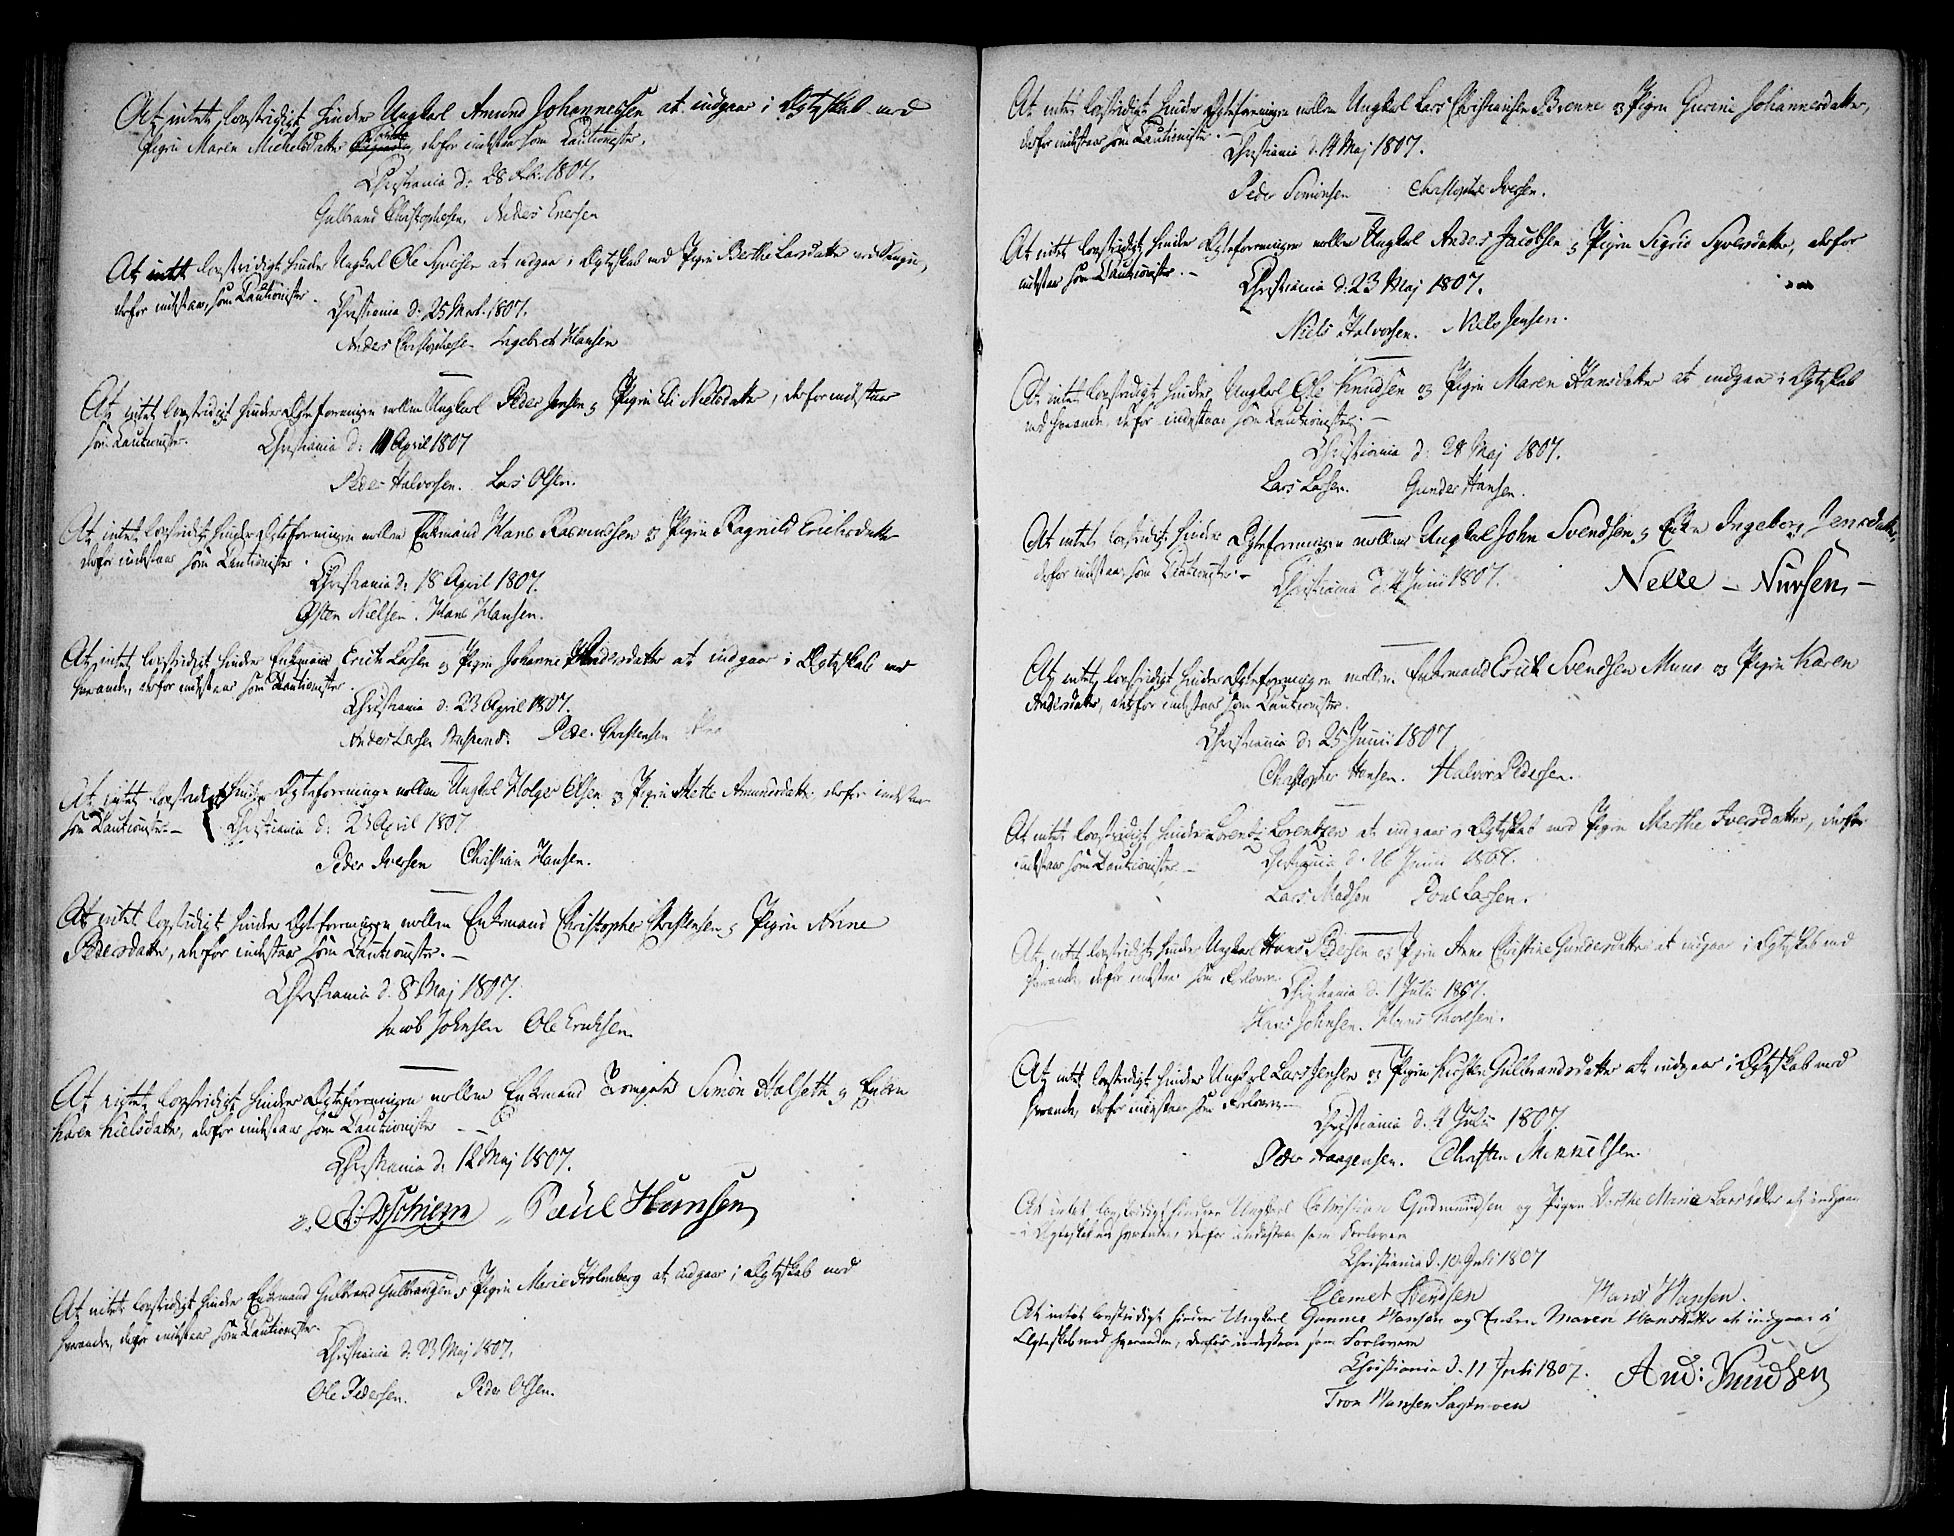 At intet lovstridigt hinder Ungkarl Amund Johannessen at indgaae i Ægteskab med
Pigen Maren Michelsdatter derfor indestaar som Cautionister.
Christiania d: 28 Feb: 1807.
Gulbrand Christophersen, Anders Enersen
At intet lovstridigt hinder Ungkarl Ole Syversen at indgaa i Ægteskab med Pigen Berthe Larsdatter
derfor indestaar, som Cautionister.
Christiania d: 25 Mart: 1807.
Anders Christophersen Ingebret Hansen
At intet lovstridigt hinder Ægteforeningen mellem Ungkarl Peder Jensen og Pigen Eli Nielsdatter, derfor indestaar
som Cautionister.
Christiania d: 11 April 1807
Peder Halvorsen. Lars Olsen.
At intet lovstridigt hinder Ægteforeningen mellem Enkemand Hans Rasmussen og Pigen Ragnild Erichsdatter
derfor indestaar som Cautionister
Christiania d: 18 April 1807.
Østen Nielsen. Hans Hansen.
At intet lovstridigt hinder Enkemand Erich Larsen og Pigen Johanne Andersdatter at indgaar i Ægteskab med
hverandre, derfor indestaar som Cautionister.
Christiania d: 23 April 1807.
Anders Larsen Peder Christensen
At intet lovstridigt hinder Ægteforeninge mellem Ungkarl Holger Olsen og Pigen Mette Amundsdatter, derfor indestaar
som Cautionister.— Christiania d: 23 April 1807
Peder Iversen Christian Hansen.
At intet lovstridigt hinder Ægteforeningen mellem Enkemand Christopher Christensen og Pigen Anne
Pedersdatter, derfor indestaar som Cautionister.—
Christiania d. 8 Maj 1807.
Jacob Johnsen Ole Erichsen
At intet lovstridigt hinder Ægteforeningen mellem Enkemand Simon Halseth og Enken
Karen Nielsdatter, derfor indestaar som Cautionister —
Christiania d. 12 Maj 1807.
Paul Hansen
At intet lovstridigt hinder Enkemand Gulbrand Gulbrandsen og Pigen Marie Holmberg at indgaar i Ægteskab med
hverandre, derfor indestaar som Cautionister.
Christiania d: 23 Maj 1807.
Ole Pedersen. Peder Olsen.
At intet lovstridigt hinder Ægteforeningen mellem Ungkarl Lars Christiansen Brenne og Pigen Gurine Johannesdatter,
derfor indestaar som Cautionister.—
Christiania d. 14 Maj 1807.
Peder Simonsen Christopher Iversen.
At intet lovstridigt hinder Ægteforeningen mellem Ungkarl Anders Jacobsen og Pigen Sigrid Syversdatter, derfor
indestaar som Cautionister.—
Christiania d: 23 Maj 1807.
Niels Halvorsen. Niels Jensen.
At intet lovstridigt hinder Ungkarl Ole Knudsen og Pigen Maren Hansdatter at indgaar i Ægteskab
med hverandre, derfor indestaar som Cautionister.—
Christiania d: 28 Maj 1807.
Lars Larsen. Gunder Hansen.
At intet lovstridigt hinder Ægteforeningen mellem Ungkarl John Svendsen og Enken Ingeborg Jensdatter,
derfor indestaar, som Cautionister.—
Christiania d. 4 Junii 1807. Nelle — Nursen —
At intet lovstridigt hinder Ægteforeningen mellem Enkemand Erich Svendsen Muus og Pigen Karen
Andersdatter, derfor indestaar som Cautionister.
Christiania d: 25 Junii 1807
Christopher Hansen. Halvor Pedersen.
At intet lovstridigt hinder Lorentz Lorentzen at indgaar i Ægteskab med Pigen Marthe Iversdatter, derfor
indestaar som Cautionister.—
Christiania d. 26 Junii 1807.
Lars Madsen Poul Larsen.
At intet lovstridigt hinder Ungkarl Hans Pedersen og Pigen Anne Christine Gundersdatter at indgaar i Ægteskab med
hverandre, derfor indestaar som Forlovere.
Christiania d. 1 Julii 1807.
Hans Johnsen. Hans Thoresen.
At intet lovstridigt hinder Ungkarl Lars Jensen og Pigen Kirsten Gulbrandsdatter at indgaar i Ægteskab med
hverandre, derfor indestaar som Forlovere—
Christiania d. 4 Julii 1807.
Peder Haagensen. Christen
At intet lovstridigt hinder Ungkarl Christian Gudmundsen og Pigen Dorthe Maria Larsdatter at indgaae
i Ægteskab med hverandre, derfor indestaar som Forlovere
Christiania d. 10 Juli 1807
Clemet Svendsen Hans Hansen.
At intet lovstridigt hinder Ungkarl Gunner Hansen og Enken Maren Hansdatter at indgaae i
Ægteskab med hverandre, derfor indestaar som Forlovere
Christiania d. 11 Juli 1807. And: Knudsen
Tron Hansen